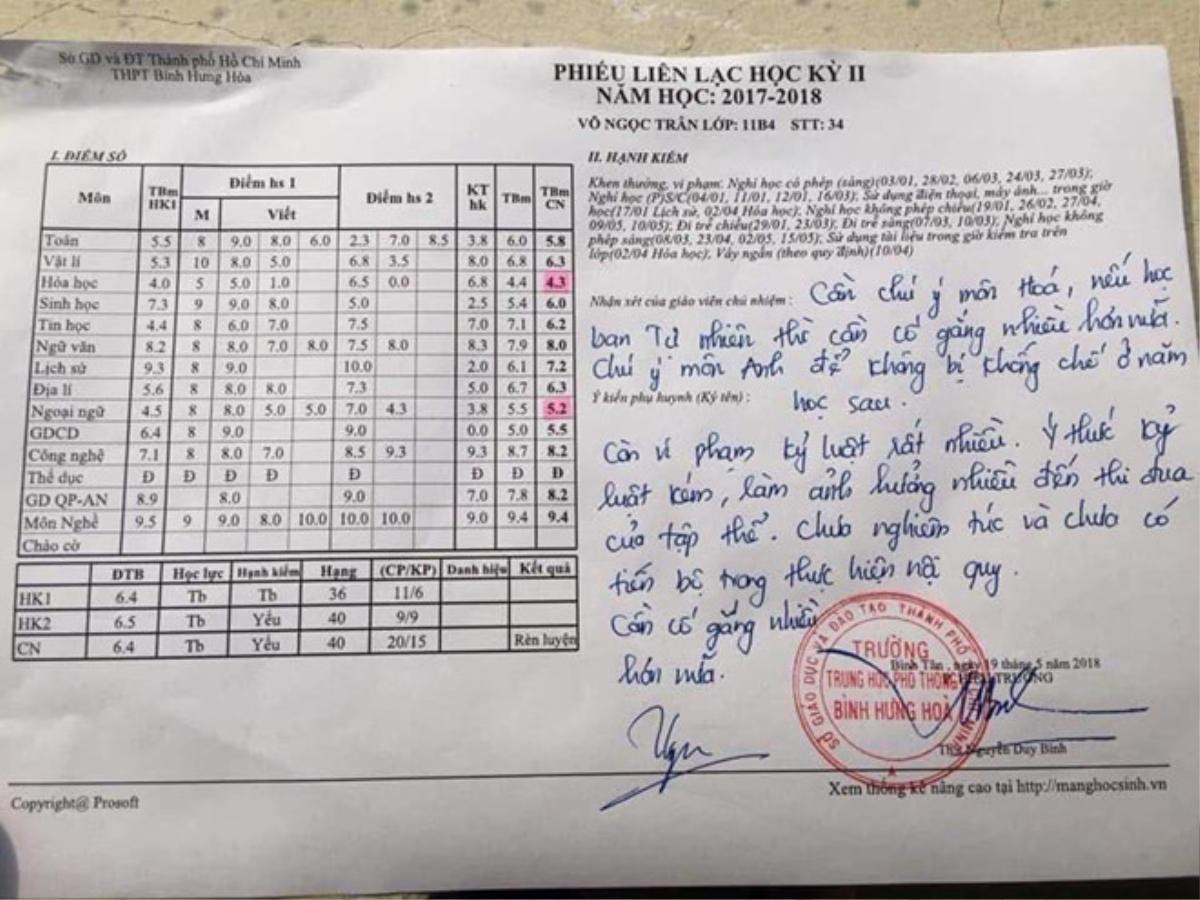 Sở GD và ĐT Thành phố Hồ Chí Minh
THPT Bình Hưng Hòa
PHIẾU LIÊN LẠC HỌC KỲ II
NĂM HỌC: 2017-2018
VÕ NGỌC TRÂN LỚP: 11B4 STT: 34
I. ĐIỂM SỐ
Môn TBm HK1 Điểm hs 1 M Viết Điểm hs 2 KT hk TBm TBm CN
Toán 5.5 8 9.0 8.0 6.0 2.3 7.0 8.5 3.8 6.0 5.8
Vật lí 5.3 10 8.0 5.0 6.8 3.5 8.0 6.8 6.3
Hóa học 4.0 5 5.0 1.0 6.5 0.0 6.8 4.4 4.3
Sinh học 7.3 9 9.0 8.0 5.0 2.5 5.4 6.0
Tin học 4.4 8 6.0 7.0 7.5 7.0 7.1 6.2
Ngữ văn 8.2 8 8.0 7.0 8.0 7.5 8.0 8.3 7.9 8.0
Lịch sử 9.3 8 9.0 10.0 2.0 6.1 7.2
Địa lí 5.6 8 8.0 8.0 7.3 5.0 6.7 6.3
Ngoại ngữ 4.5 8 8.0 5.0 5.0 7.0 4.3 3.8 5.5 5.2
GDCD 6.4 8 9.0 9.0 0.0 5.0 5.5
Công nghệ 7.1 8 8.0 7.0 8.5 9.3 9.3 8.7 8.2
Thể dục Đ Đ Đ Đ Đ Đ Đ Đ
GD QP-AN 8.9 8.0 9.0 7.0 7.8 8.2
Môn Nghề 9.5 9 9.0 8.0 10.0 10.0 10.0 9.0 9.4 9.4
Chào cờ
ĐTB Học lực Hạnh kiểm Hạng (CP/KP) Danh hiệu Kết quả
HK1 6.4 Tb Tb 36 11/6
HK2 6.5 Tb Yếu 40 9/9
CN 6.4 Tb Yếu 40 20/15 Rèn luyện
II. HẠNH KIỂM
Khen thưởng, vi phạm: Nghỉ học có phép (sáng)(03/01, 28/02, 06/03, 24/03, 27/03);
Nghỉ học (P)S/C(04/01, 11/01, 12/01, 16/03); Sử dụng điện thoại, máy ảnh... trong giờ
học(17/01 Lịch sử, 02/04 Hóa học); Nghỉ học không phép chiều(19/01, 26/02, 27/04,
09/05, 10/05); Đi trễ chiều(29/01, 23/03); Đi trễ sáng(07/03, 10/03); Nghỉ học không
phép sáng(08/03, 23/04, 02/05, 15/05); Sử dụng tài liệu trong giờ kiểm tra trên
lớp(02/04 Hóa học); Váy ngắn (theo quy định)(10/04)
Nhận xét của giáo viên chủ nhiệm : Cần chú ý môn Hoá, nếu học
ban Tự nhiên thì cần cố gắng nhiều hơn nữa.
Chú ý môn Anh để không bị khống chế ở năm
học sau.
Ý kiến phụ huynh (Ký tên) :
Còn vi phạm kỷ luật rất nhiều. Ý thức kỷ
luật kém, làm ảnh hưởng nhiều đến thi đua
của tập thể. Chưa nghiêm túc và chưa có
tiến bộ trong thực hiện nội quy.
Cần cố gắng nhiều
hơn nữa.
Bình Tân, ngày 19 tháng 5 năm 2018
HIỆU TRƯỞNG
SỞ GIÁO DỤC VÀ ĐÀO TẠO THÀNH PHỐ HỒ CHÍ MINH
TRƯỜNG
TRUNG HỌC PHỔ THÔNG
BÌNH HƯNG HOÀ
ThS Nguyễn Duy Bình
Xem thống kê nâng cao tại http://manghocsinh.vn
Copyright@ Prosoft